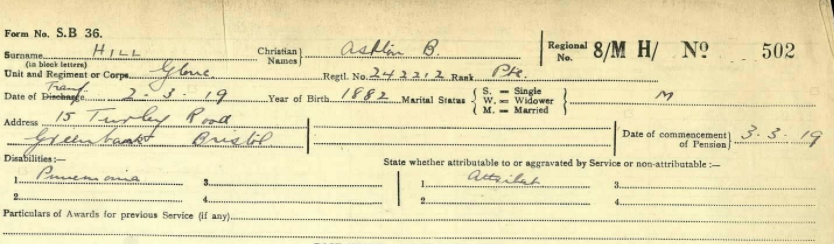 Form No. S.B 36.
Surname HILL Christian Names Ashton B. Regional No. 8/M H/ No 502
(in block letters)
Unit and Regiment or Corps Glouc. Regtl. No. 242212 Rank Pte.
Transf
Date of Discharge 2-3-19 Year of Birth 1882 Marital Status { S. = Single W. = Widower M. = Married } M
Address 15 Turley Road
Greenbank Bristol Date of commencement of Pension } 3.3.19
Disabilities:— State whether attributable to or aggravated by Service or non-attributable:—
1. Pneumonia 3. 1. Attribut 3.
2. 4. 2. 4.
Particulars of Awards for previous Service (if any)